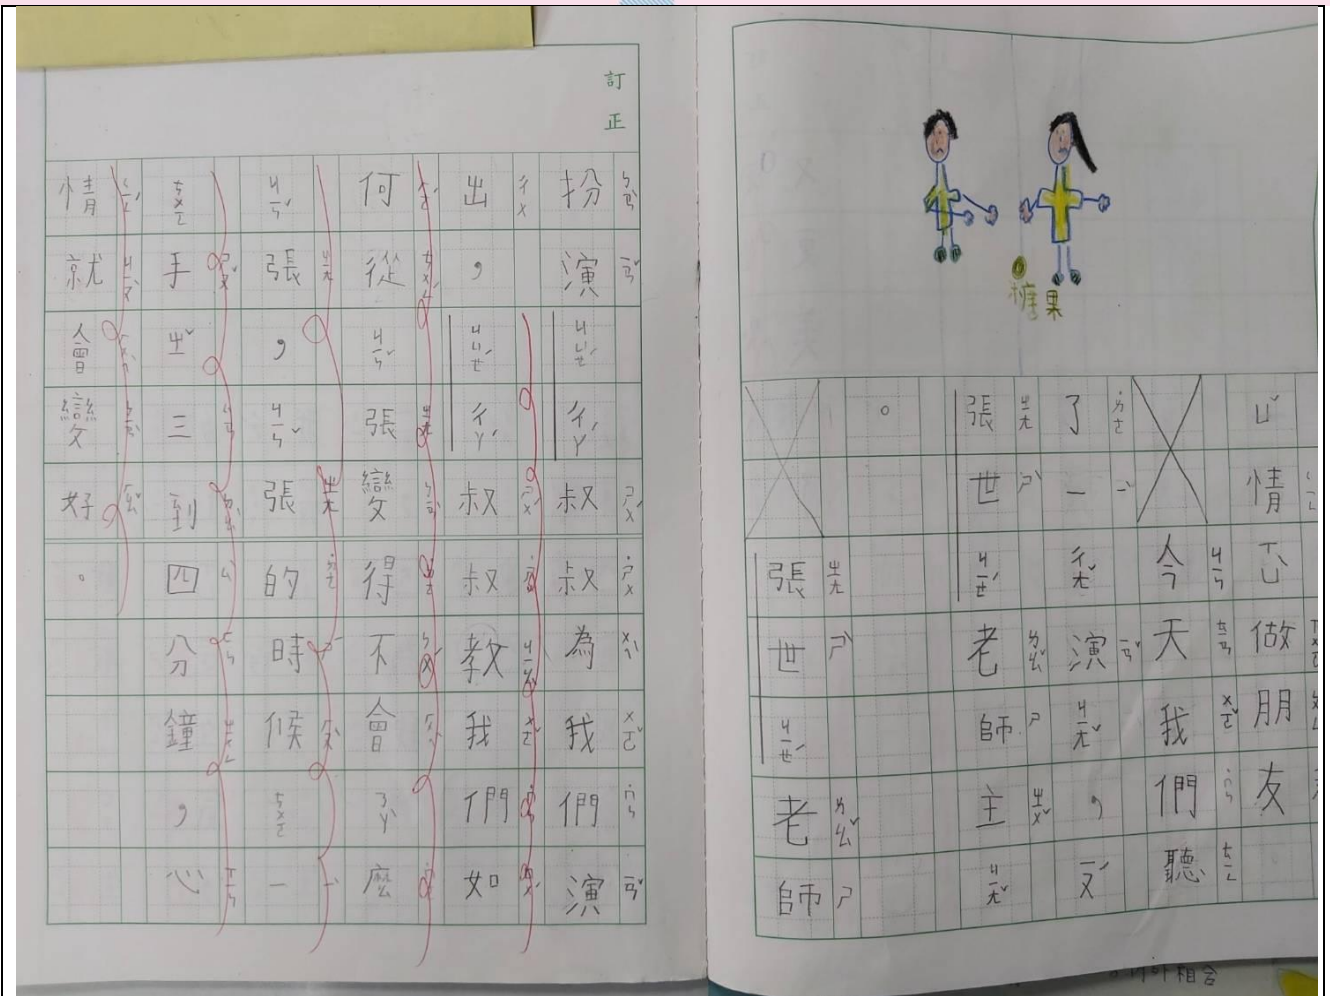 糖果
ㄩˇ情ㄒㄩˋ做朋友
今天我們聽
了一ㄔㄤˇ演ㄐㄧㄤˇ，ㄧㄡˊ
張世ㄐㄧㄝˊ老師主ㄐㄧㄤˇ
。
張世ㄐㄧㄝˊ老師
訂正
扮演ㄐㄩㄝˊㄔㄚˊ叔叔為我們演
出，ㄐㄩㄝˊㄔㄚˊ叔叔教我們如
何從ㄐㄧㄣˇ張變得不會ㄋㄚˋ麼
ㄐㄧㄣˇ張，ㄐㄧㄣˇ張的時候ㄘㄨㄛ一
ㄘㄨㄛ手ㄓˇ三到四分鐘，心
情就會變好。